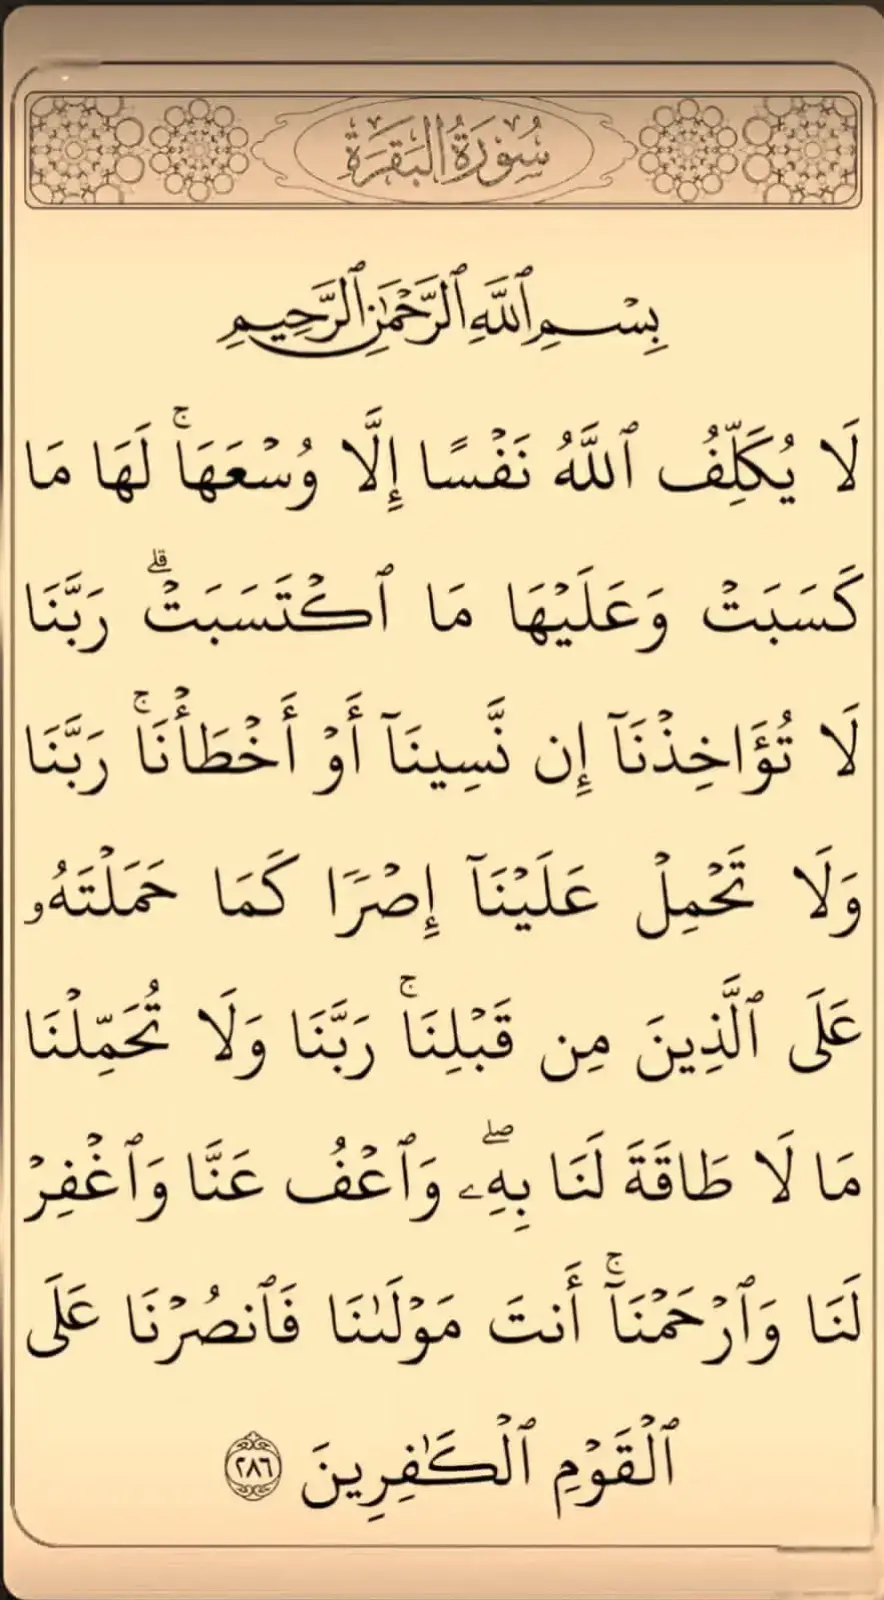 سُورَةُ البَقَرَةِ
بِسۡمِ ٱللَّهِ ٱلرَّحۡمَٰنِ ٱلرَّحِيمِ
لَا يُكَلِّفُ ٱللَّهُ نَفۡسًا إِلَّا وُسۡعَهَاۚ لَهَا مَا
كَسَبَتۡ وَعَلَيۡهَا مَا ٱكۡتَسَبَتۡۗ رَبَّنَا
لَا تُؤَاخِذۡنَآ إِن نَّسِينَآ أَوۡ أَخۡطَأۡنَاۚ رَبَّنَا
وَلَا تَحۡمِلۡ عَلَيۡنَآ إِصۡرٗا كَمَا حَمَلۡتَهُۥ
عَلَى ٱلَّذِينَ مِن قَبۡلِنَاۚ رَبَّنَا وَلَا تُحَمِّلۡنَا
مَا لَا طَاقَةَ لَنَا بِهِۦۖ وَٱعۡفُ عَنَّا وَٱغۡفِرۡ
لَنَا وَٱرۡحَمۡنَآۚ أَنتَ مَوۡلَىٰنَا فَٱنصُرۡنَا عَلَى
ٱلۡقَوۡمِ ٱلۡكَٰفِرِينَ ٢٨٦